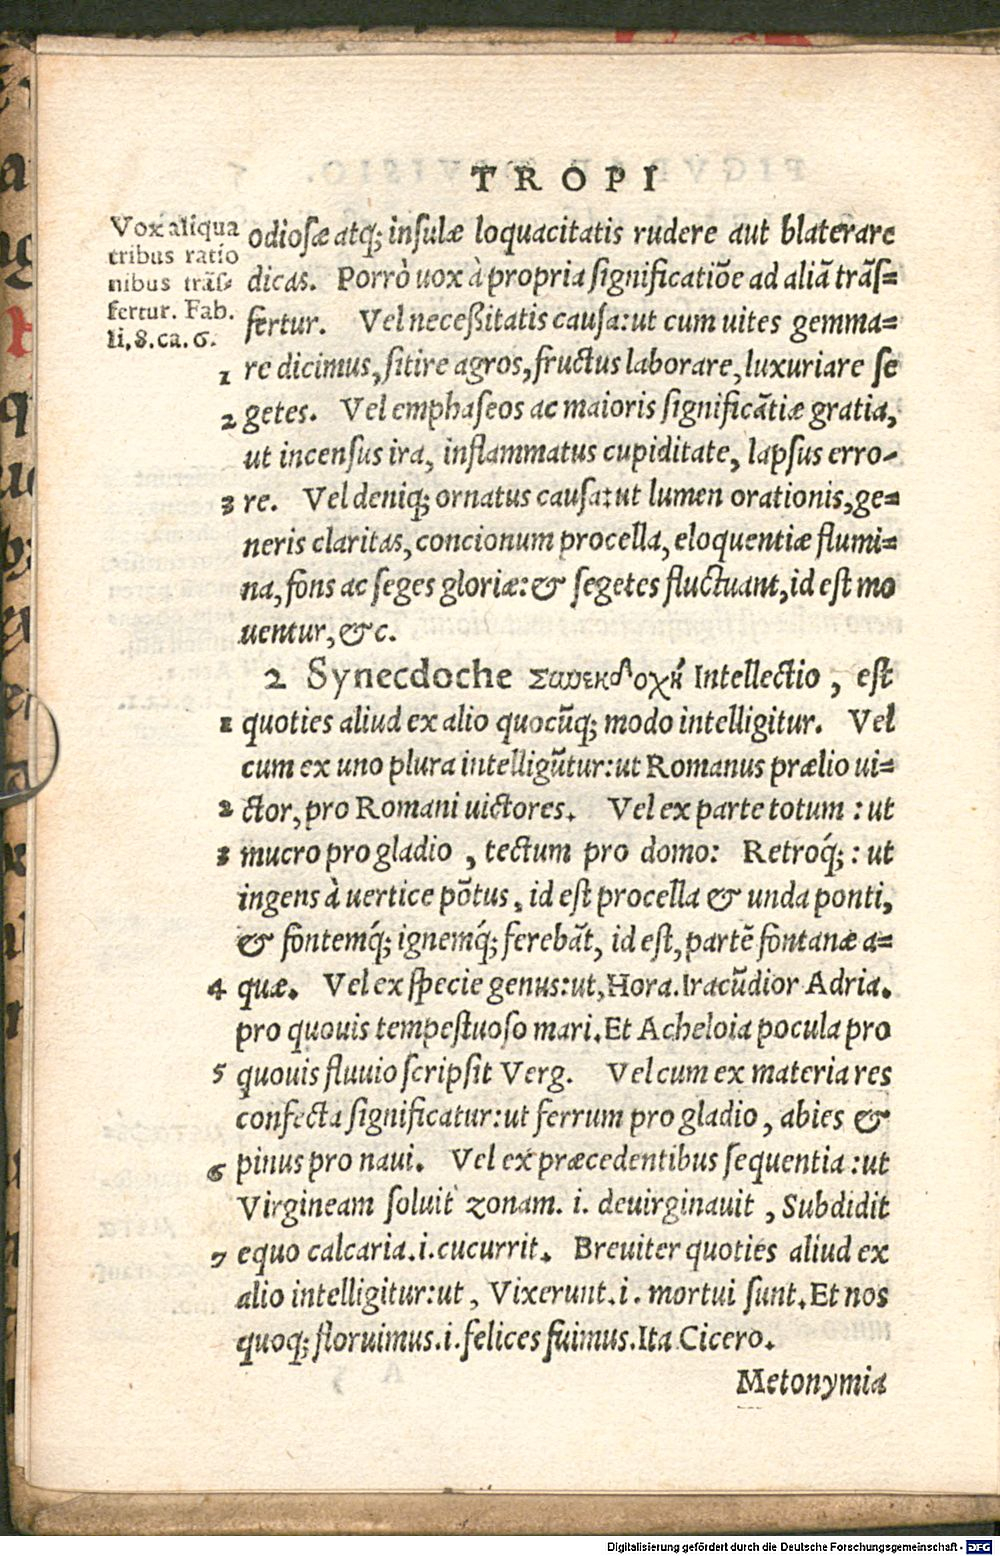 TROPI
Vox aliqua
tribus ratio
nibus trãſ-
fertur. Fab.
li.8.ca.6.
odioſæ atq; inſulæ loquacitatis rudere aut blaterare
dicas. Porrò uox à propria ſignificatiõe ad aliã trãſ=
fertur. Vel neceßitatis cauſa:ut cum uites gemma=
1 re dicimus, ſitire agros, fructus laborare, luxuriare ſe
2 getes. Vel emphaſeos ac maioris ſignificãtiæ gratia,
ut incenſus ira, inflammatus cupiditate, lapſus erro-
3 re. Vel deniq; ornatus cauſa:ut lumen orationis, ge=
neris claritas, concionum procella, eloquentiæ flumi=
na, fons ac ſeges gloriæ: & ſegetes fluctuant, id eſt mo
uentur, &c.
2 Synecdoche Συνεκδοχὴ Intellectio, eſt
1 quoties aliud ex alio quocũq; modo intelligitur. Vel
cum ex uno plura intelligũtur:ut Romanus prælio ui=
2 ctor, pro Romani uictores. Vel ex parte totum : ut
3 mucro pro gladio , tectum pro domo: Retroq́; : ut
ingens à uertice põtus, id eſt procella & unda ponti,
& fontemq́; ignemq́; ferebãt, id eſt, partẽ fontanæ a=
4 quæ. Vel ex ſpecie genus:ut, Hora. Iracũdior Adria.
pro quouis tempeſtuoſo mari. Et Acheloia pocula pro
5 quouis fluuio ſcripſit Verg. Vel cum ex materia res
confecta ſignificatur:ut ferrum pro gladio, abies &
6 pinus pro naui. Vel ex præcedentibus ſequentia :ut
Virgineam ſoluit zonam. i. deuirginauit , Subdidit
7 equo calcaria.i.cucurrit. Breuiter quoties aliud ex
alio intelligitur:ut, Vixerunt.i. mortui ſunt. Et nos
quoq; floruimus.i.felices fuimus. Ita Cicero.
Metonymia
Digitalisierung gefördert durch die Deutsche Forschungsgemeinschaft - DFG